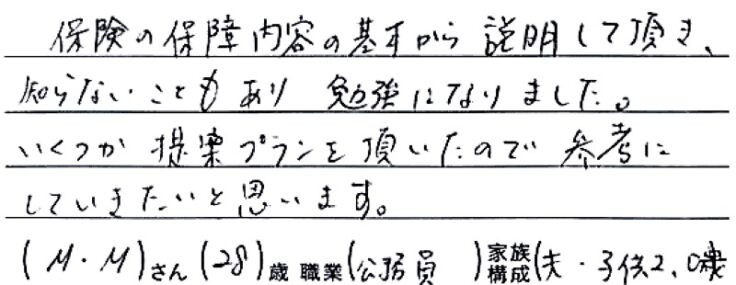 保険の保障内容の基本から説明して頂き、
知らないこともあり 勉強になりました。
いくつか提案プランを頂いたので参考に
していきたいと思います。
(M・M)さん(28)歳 職業(公務員 )家族構成(夫・子供2、0歳